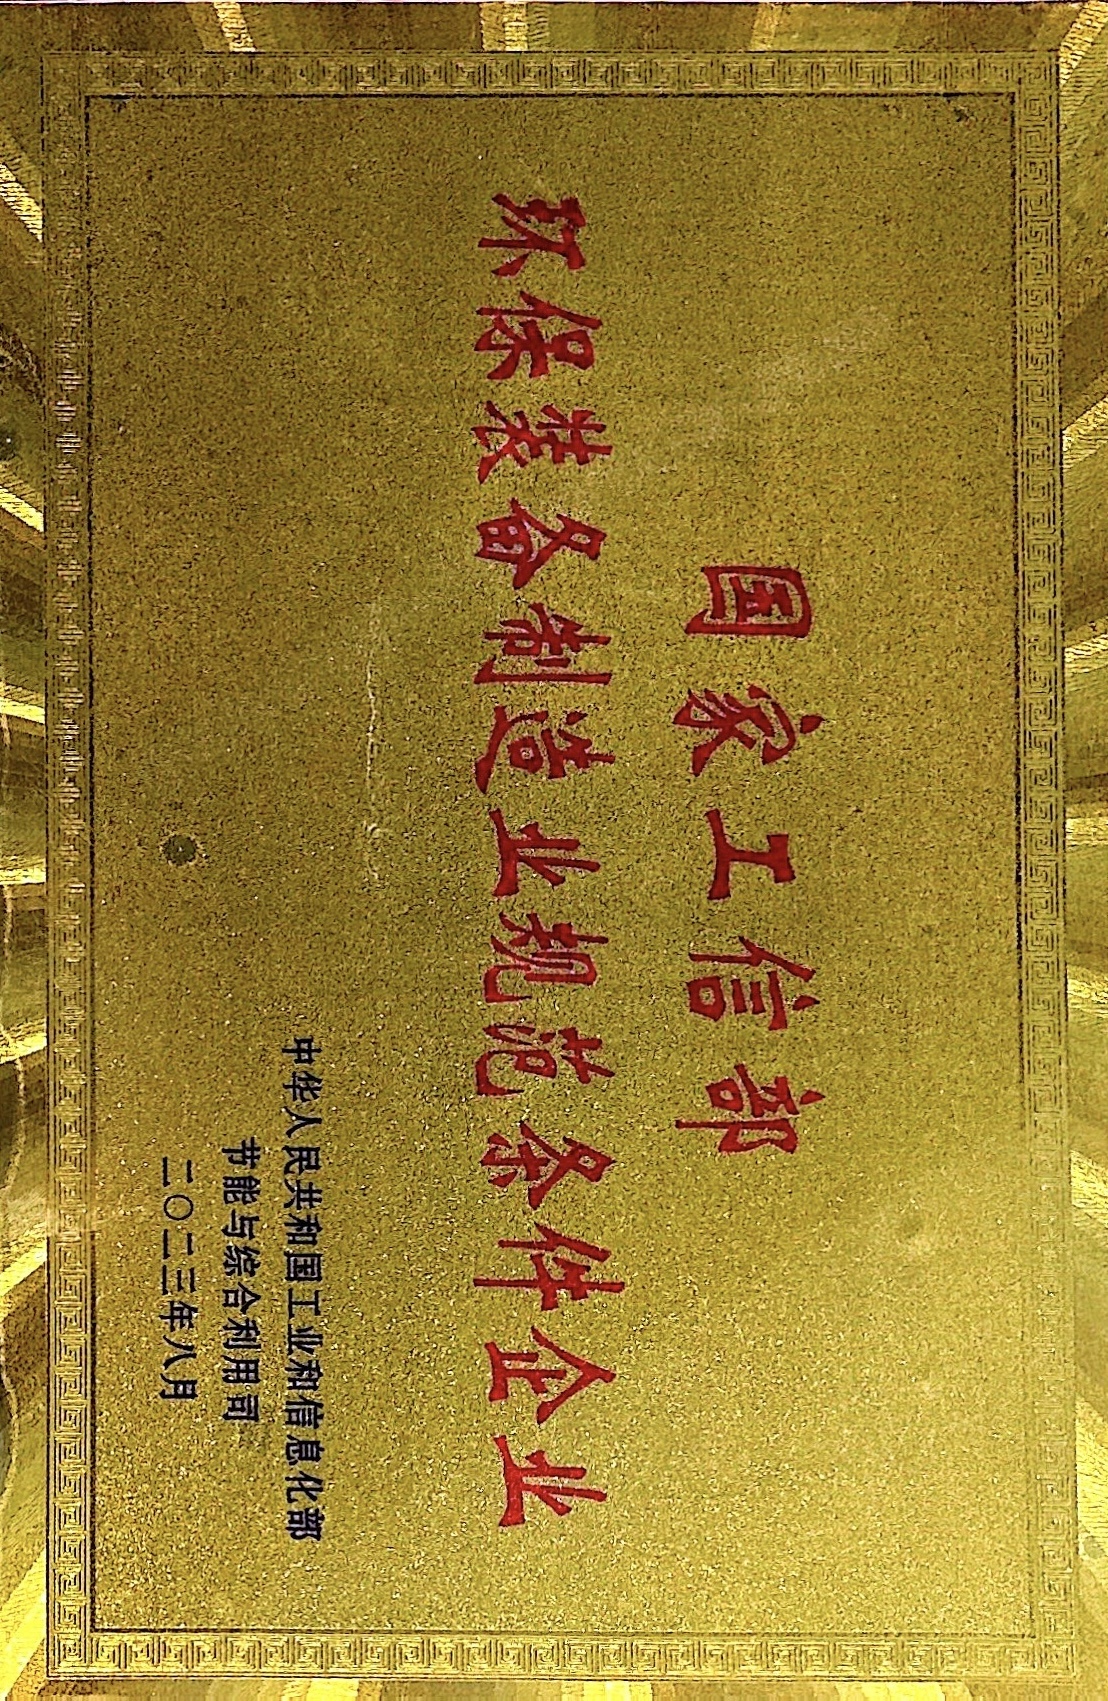 国家工信部
环保装备制造业规范条件企业
中华人民共和国工业和信息化部
节能与综合利用司
二〇二三年八月